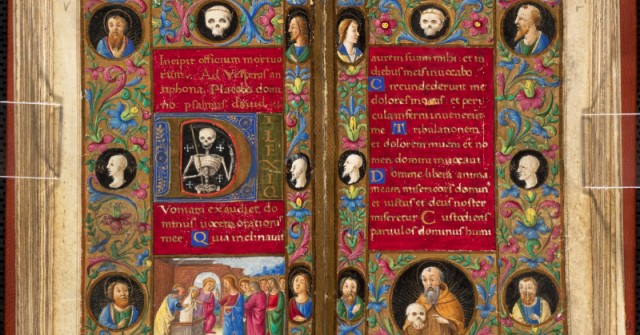 Incipit officium mortuo
rum. Ad Vesperas an
tiphona. Placebo domi
no: psalmus dauid.
DILEXIQ
Voniam exaudiet do
minus uocem orationis
mee. Quia inclinauit
aurem suam mihi: et in
diebus meis inuocabo
Circundederunt me
dolores mortis et peri
cula inferni inuenerūt
me Tribulationem
et dolorem inueni et no
men domini inuocaui
O domine libera animā
meam misericors dominus
et iustus et deus noster
miseretur Custodiens
paruulos dominus humi